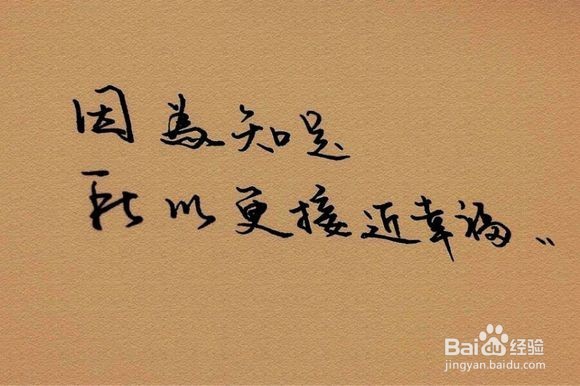 因為知足
所以更接近幸福〃
Baidu经验
jingyan.baidu.com